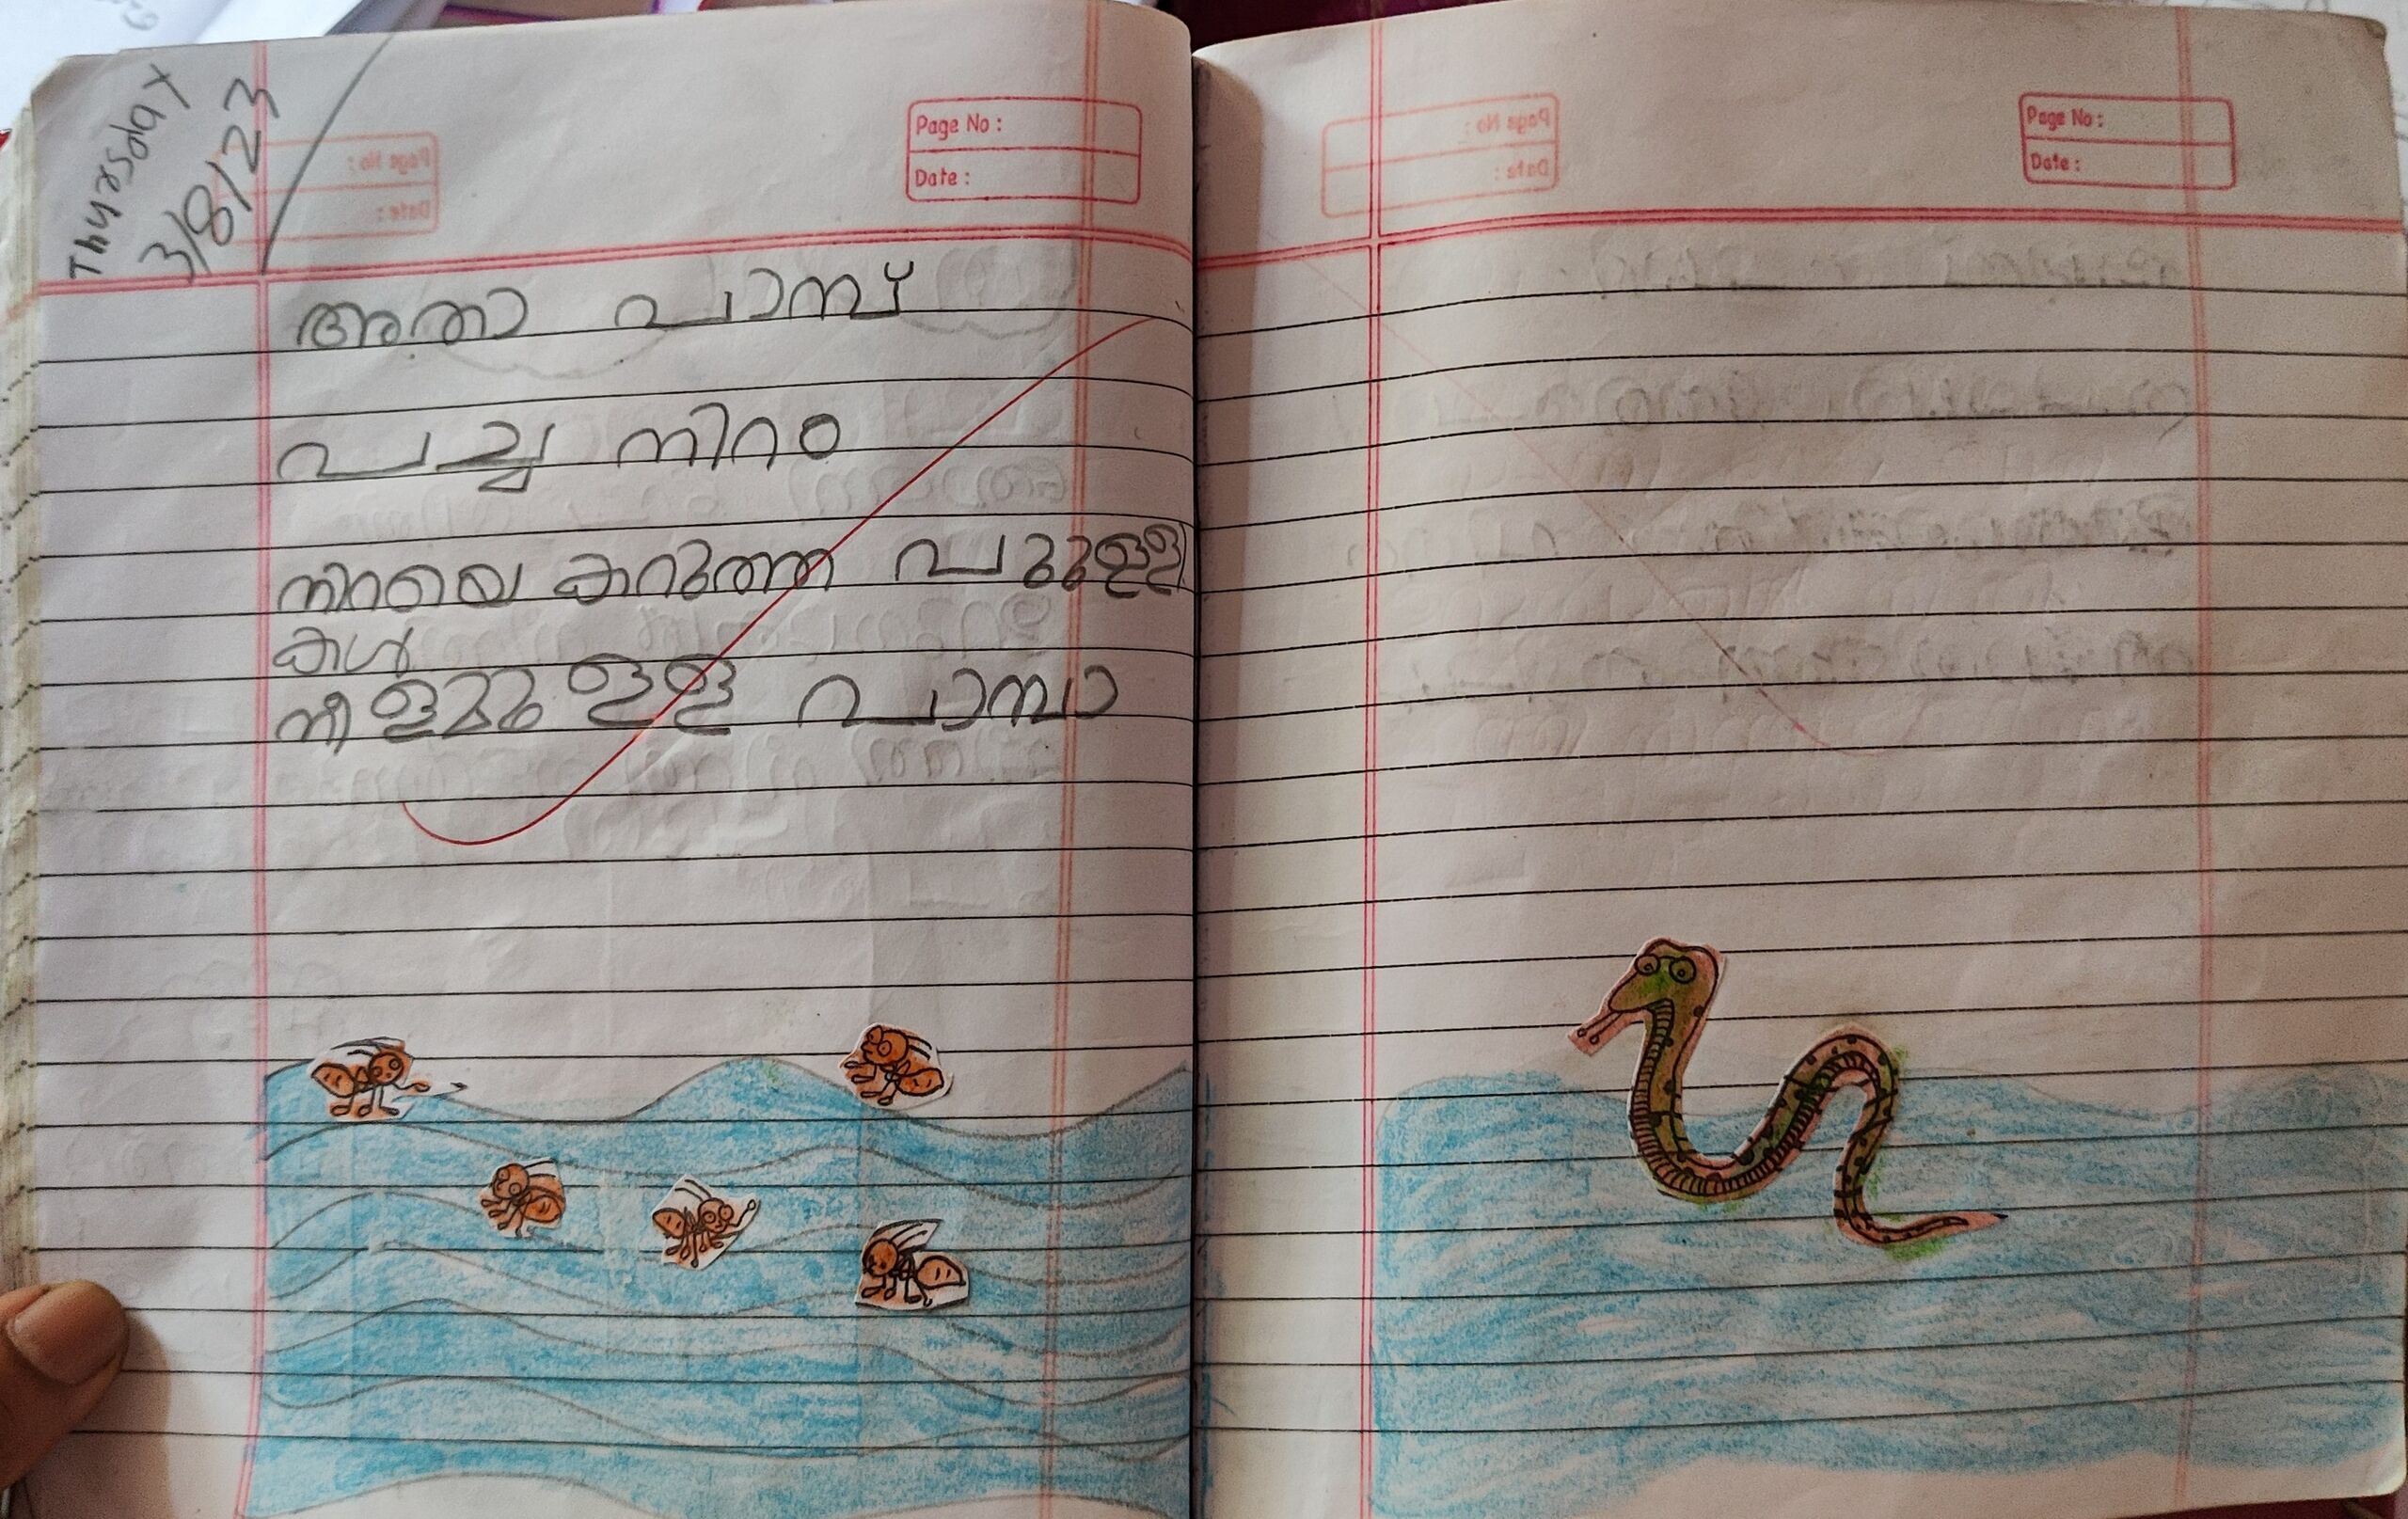 Thursday
3/8/23
Page No :
Date :
അതാ പാമ്പ്
പച്ച നിറം
നിറയെ കറുത്ത പുള്ളി
കൾ
നീളമുള്ള പാമ്പാ
Page No :
Date :